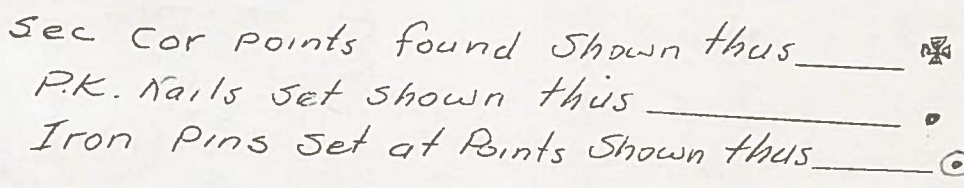 Sec Cor Points found Shown thus
P.K. Nails set shown thus
Iron Pins Set at Points Shown thus